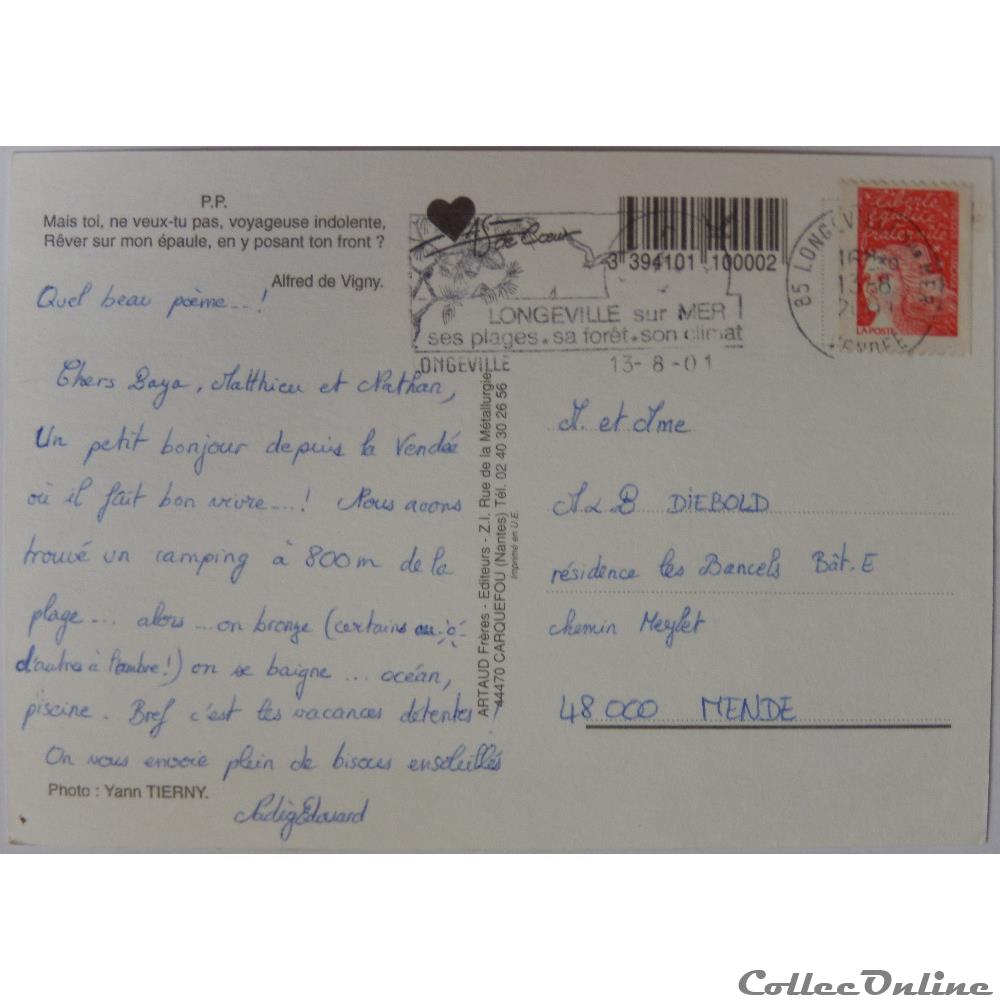 P.P.
Mais toi, ne veux-tu pas, voyageuse indolente,
Rêver sur mon épaule, en y posant ton front ?
Alfred de Vigny.
Quel beau poème...!
Chers Baya, Matthieu et Nathan,
Un petit bonjour depuis la Vendée
où il fait bon vivre....! Nous avons
trouvé un camping à 800m de la
plage... alors... on bronze (certains au
d'autres à l'ombre!) on se baigne ... océan,
piscine. Bref c'est les vacances détentes !
On vous envoie plein de bisous ensoleillés
Photo : Yann TIERNY.
Edouard
As de Cœur
3 394101 100002
LONGEVILLE sur MER
ses plages.sa forêt.son climat
ONGEVILLE 13-8-01
85 LONGEV
MER
16
13-8
LA POSTE
Liberté
égalité
fraternité
ARTAUD Frères - Editeurs - Z.I. Rue de la Métallurgie
44470 CARQUEFOU (Nantes) Tél. 02 40 30 26 56
Imprimé en U.E.
M. et Mme
M & B DIEBOLD
résidence les Bancels Bât. E
chemin Meylet
48 000 MENDE
CollecOnline